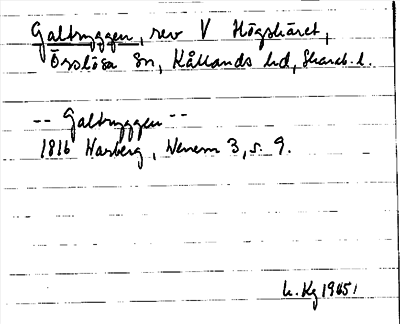 Galtryggen, rev V Högskäret,
Örslösa sn, Kållands hd, Skarab. l.
-- Galtryggen --
1816 Warberg, Wenern 3, s. 9.
h. Kg 1945